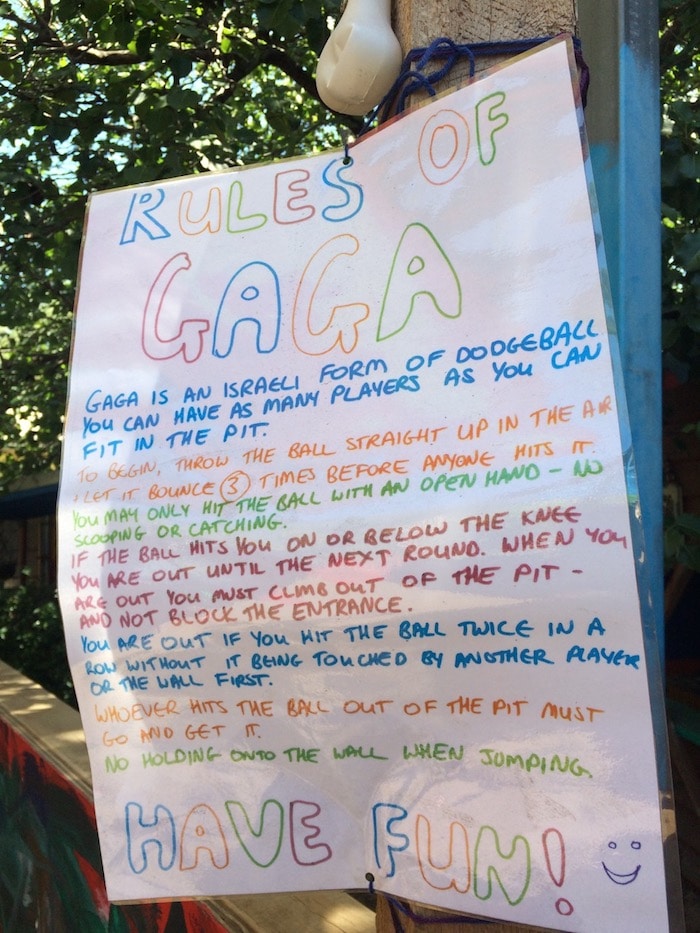 RULES OF
GAGA
GAGA IS AN ISRAELI FORM OF DODGEBALL
YOU CAN HAVE AS MANY PLAYERS AS YOU CAN
FIT IN THE PIT.
TO BEGIN, THROW THE BALL STRAIGHT UP IN THE AIR
LET IT BOUNCE 3 TIMES BEFORE ANYONE HITS IT.
YOU MAY ONLY HIT THE BALL WITH AN OPEN HAND - NO
SCOOPING OR CATCHING.
IF THE BALL HITS YOU ON OR BELOW THE KNEE
YOU ARE OUT UNTIL THE NEXT ROUND. WHEN YOU
ARE OUT YOU MUST CLIMB OUT OF THE PIT -
AND NOT BLOCK THE ENTRANCE.
YOU ARE OUT IF YOU HIT THE BALL TWICE IN A
ROW WITHOUT IT BEING TOUCHED BY ANOTHER PLAYER
OR THE WALL FIRST.
WHOEVER HITS THE BALL OUT OF THE PIT MUST
GO AND GET IT.
NO HOLDING ONTO THE WALL WHEN JUMPING.
HAVE FUN!